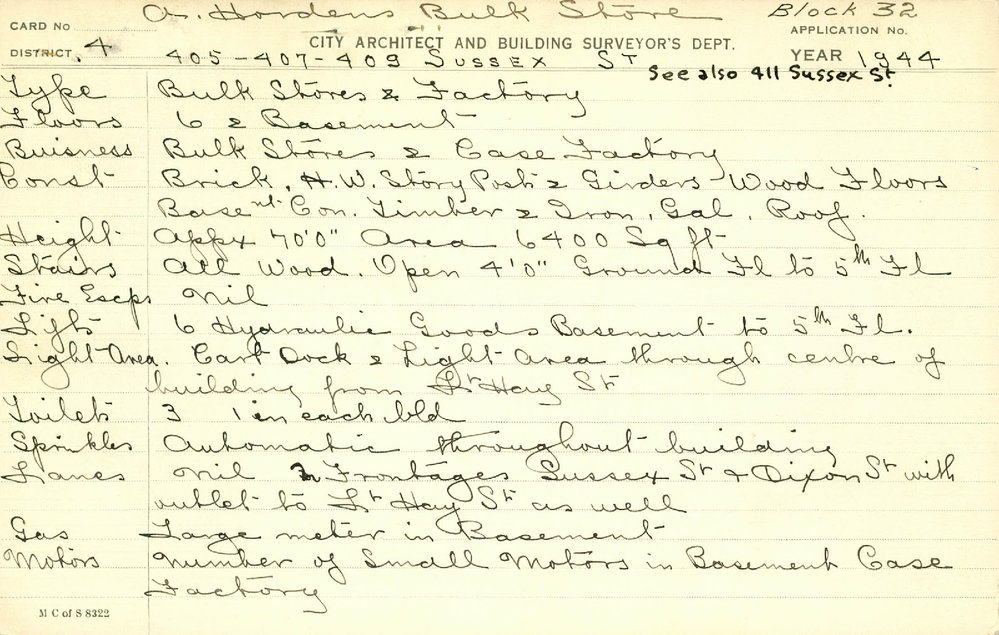 A. Hordens Bulk Store Block 32
CARD No APPLICATION No.
DISTRICT. 4 CITY ARCHITECT AND BUILDING SURVEYOR'S DEPT. YEAR 1944
405-407-409 Sussex St
See also 411 Sussex St.
Type Bulk Stores & Factory
Floors 6 & Basement
Buisness Bulk Stores & Case Factory
Const Brick, H.W. Story Posts & Girders Wood Floors
Basemt Con. Timber & Iron, Gal. Roof.
Height Appx 70'0" Area 6400 Sq ft
Stairs All Wood. Open 4'0" Ground Fl to 5th Fl
Fire Escps Nil
Lifts 6 Hydraulic Goods Basement to 5th Fl.
Light Area. Cart Dock & Light Area through centre of
building from Lt Hay St
Toilets 3 1 in each bld
Sprinkles Automatic throughout building
Lanes Nil 2 Frontages Sussex St & Dixon St with
outlet to Lt Hay St as well
Gas Large meter in Basement
Motors Number of Small Motors in Basement Case
Factory
M C of S 8322